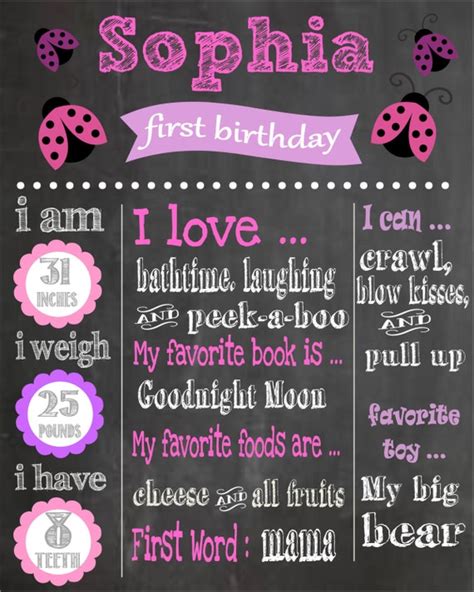 Sophia
first birthday
i am
31
INCHES
i weigh
25
POUNDS
i have
8
TEETH
I love ...
bathtime, laughing
AND peek-a-boo
My favorite book is ...
Goodnight Moon
My favorite foods are ...
cheese AND all fruits
First Word : mama
I can ...
crawl,
blow kisses,
AND
pull up
favorite
toy ...
My big
bear